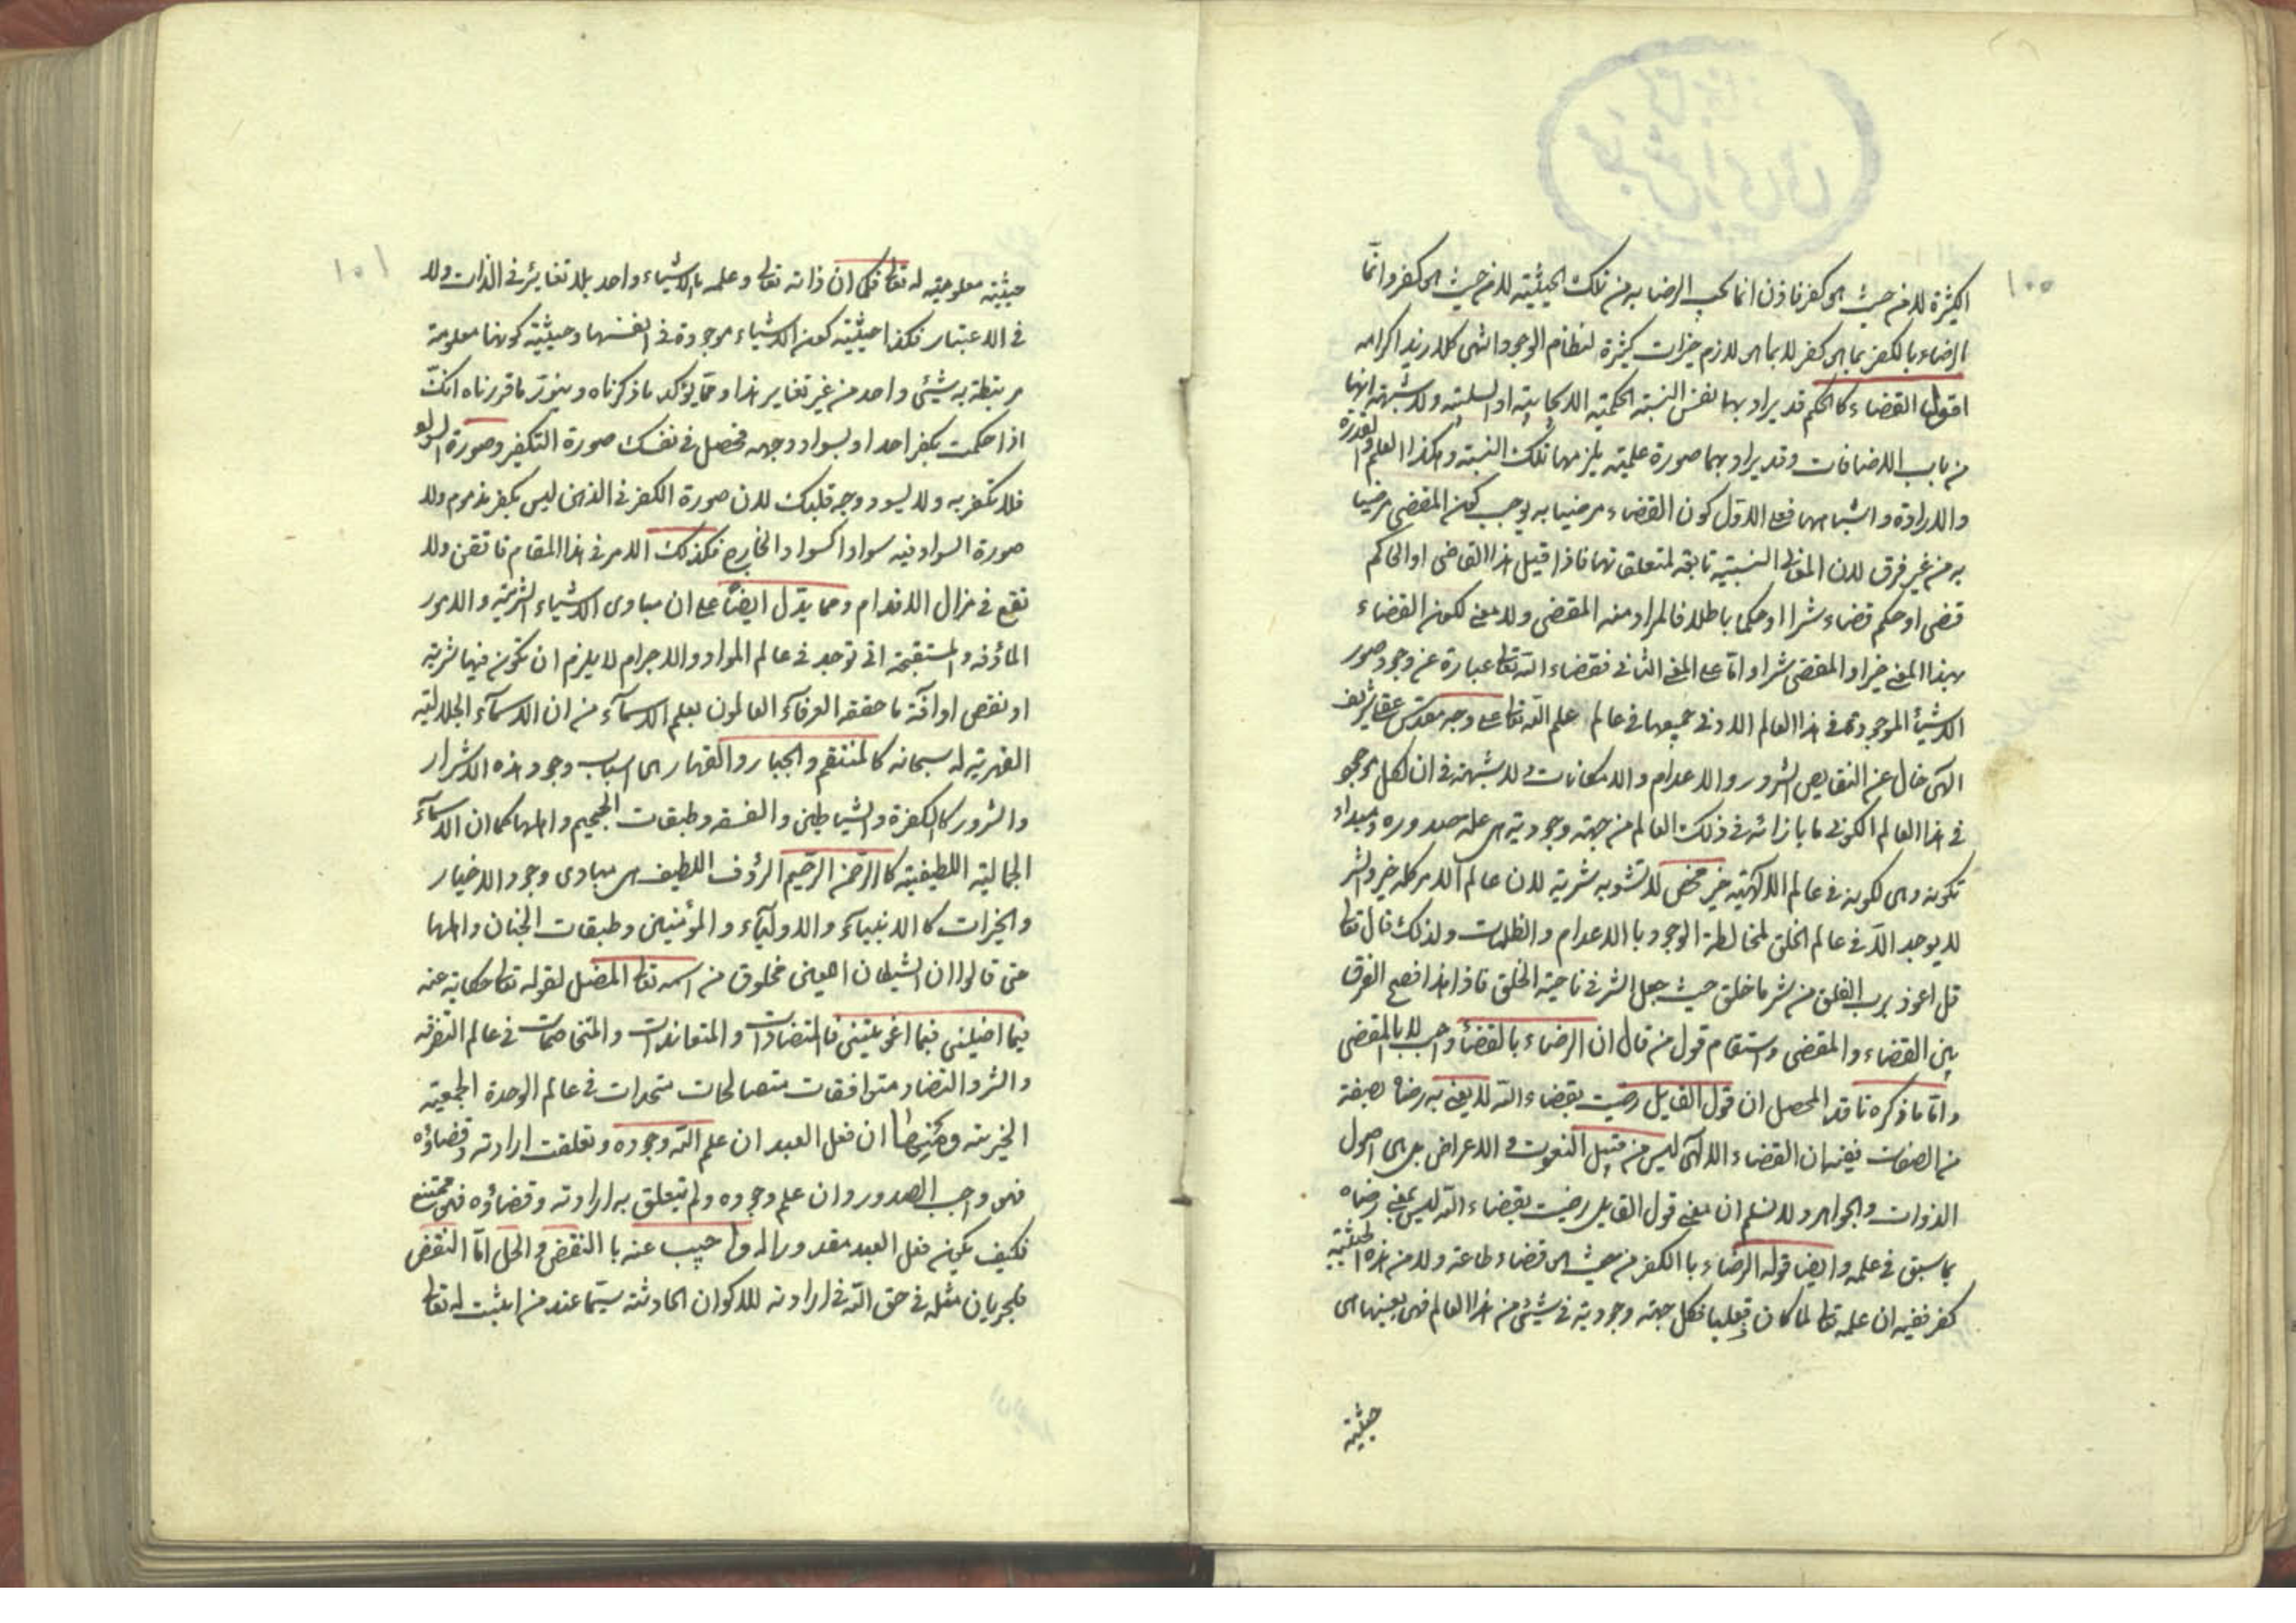 ١٠٠
الكثيرة لا من حيث هى كفر فاذن انما يجب الرضا به من تلك الحيثية لا من حيث هى كفر وانّما
الرضاء بالكفر بما هى كفر لا بما هى لازم خيرات كثيرة لنظام الوجود انتهى كلامه زيد اكرامه
اقول القضاء كالحكم قد يراد بهما نفس النسبة الحكمية الايجابية او السلبية ولا شبهة انهما
من باب الاضافات وقد يراد بهما صورة علمية يلزمها تلك النسبة وهكذا العلم والقدرة
والارادة واشباهها فعلى الاول كون القضاء مرضيا به يوجب كون المقضى مرضيا
به من غير فرق لان المعانى النسبية تابعة لمتعلقاتها فاذا قيل هذا القاضى او الحاكم
قضى او حكم قضاء شرا او حكما باطلا فالمراد منه المقضى ولا معنى لكون القضاء
بهذا المعنى خيرا والمقضى شرا وامّا على المعنى الثانى فقضاء الله تعالى عبارة عن وجود صور
الاشياء الموجودة فى هذا العالم الادنى جميعها فى عالم علم الله تعالى على وجه مقدس عقلى شريف
الهى خال عن النقايص والشرور والاعدام والامكانات ولا شبهة فى ان لكل موجود
فى هذا العالم الكونى ما بازائه فى ذلك العالم من جهة وجودية هى علة صدوره ومبداء
تكونه وهى لكونه فى عالم الالهية خير محض لا تشوبه شرية لان عالم الامر كله خير والشر
لا يوجد الّا فى عالم الخلق لمخالطة الوجود بالاعدام والظلمات ولذلك قال تعالى
قل اعوذ برب الفلق من شر ما خلق حيث جعل الشر فى ناحية الخلق فاذا هذا فصح الفرق
بين القضاء والمقضى واستقام قول من قال ان الرضاء بالقضاء واجب لا بالمقضى
وامّا ما ذكره ناقد المحصل ان قول القايل رضيت بقضاء الله لا يعنى به رضاه بصفة
من الصفات ففيه ان القضاء الالهى ليس من قبيل النعوت والاعراض بل هى اصول
الذوات والجواهر ولا نسلم ان معنى قول القايل رضيت بقضاء الله ليس بمعنى رضاه
بما سبق فى علمه وايضا قوله الرضاء بالكفر من حيث هى قضاء طاعة ولا من هذه الحيثية
كفر ففيه ان علمه تعالى لما كان فعليا فكل جهة وجودية فى شيئ من هذا العالم فهى بعينها هى
حيثية
١٠١
حيثية معلوميته له تعالى فكما ان ذاته تعالى وعلمه بالاشياء واحد بلا تغاير فى الذات ولا
فى الاعتبار فكذا حيثية كون الاشياء موجودة فى انفسها وحيثية كونها معلومة
مرتبطة به شيئى واحد من غير تغاير هذا وممّا يؤكد ما ذكرناه وينور ما قررناه انك
اذا حكمت بكفر احد او بسواد وجهه فحصل فى نفسك صورة الكفر وصورة السواد
فلا تكفر به ولا يسود وجه قلبك لان صورة الكفر فى الذهن ليس بكفر مذموم ولا
صورة السواد فيه سوادا كسواد الخارج فكذلك الامر فى هذا المقام فاتقن ولا
تقع فى مزال الاقدام ومما يدّل ايضا على ان مبادى الاشياء الشرية والامور
المأوفة والمستقبحة التى توجد فى عالم المواد والاجرام لا يلزم ان تكون فيها شرية
او نقص او آفة ما حققه العرفاء العالمون بعلم الاسماء من ان الاسماء الجلالية
القهرية له سبحانه كالمنتقم والجبار والقهار هى اسباب وجود هذه الاشرار
والشرور كالكفرة والشياطين والفسقه وطبقات الجحيم واهلها كما ان الاسماء
الجمالية اللطيفية كالرحمن الرحيم الرؤف اللطيف هى مبادى وجود الاخيار
والخيرات كالانبياء والاولياء والمؤمنين وطبقات الجنان واهلها
حتى قالوا ان الشيطان اللعين مخلوق من اسمه تعالى المضل لقوله تعالى حكاية عنه
فبما اضللتنى فبما اغويتنى فالمتضادات والمتعاندات والمتخاصمات فى عالم التفرقه
والشر والتضاد متوافقات متصالحات متحدات فى عالم الوحدة الجمعية
الخيرية ومنها ان فعل العبد ان علم الله وجوده وتعلقت ارادته وقضاؤه
فهى واجب الصدور وان علم وجوده ولم يتعلق به ارادته وقضاؤه فهى ممتنع
فكيف يكون فعل العبد مقدورا له واجيب عنه بالنقض والحل امّا النقض
فلجريان مثله فى حق الله فى ارادته للاكوان الحادثة سيّما عند من اثبت له تعالى